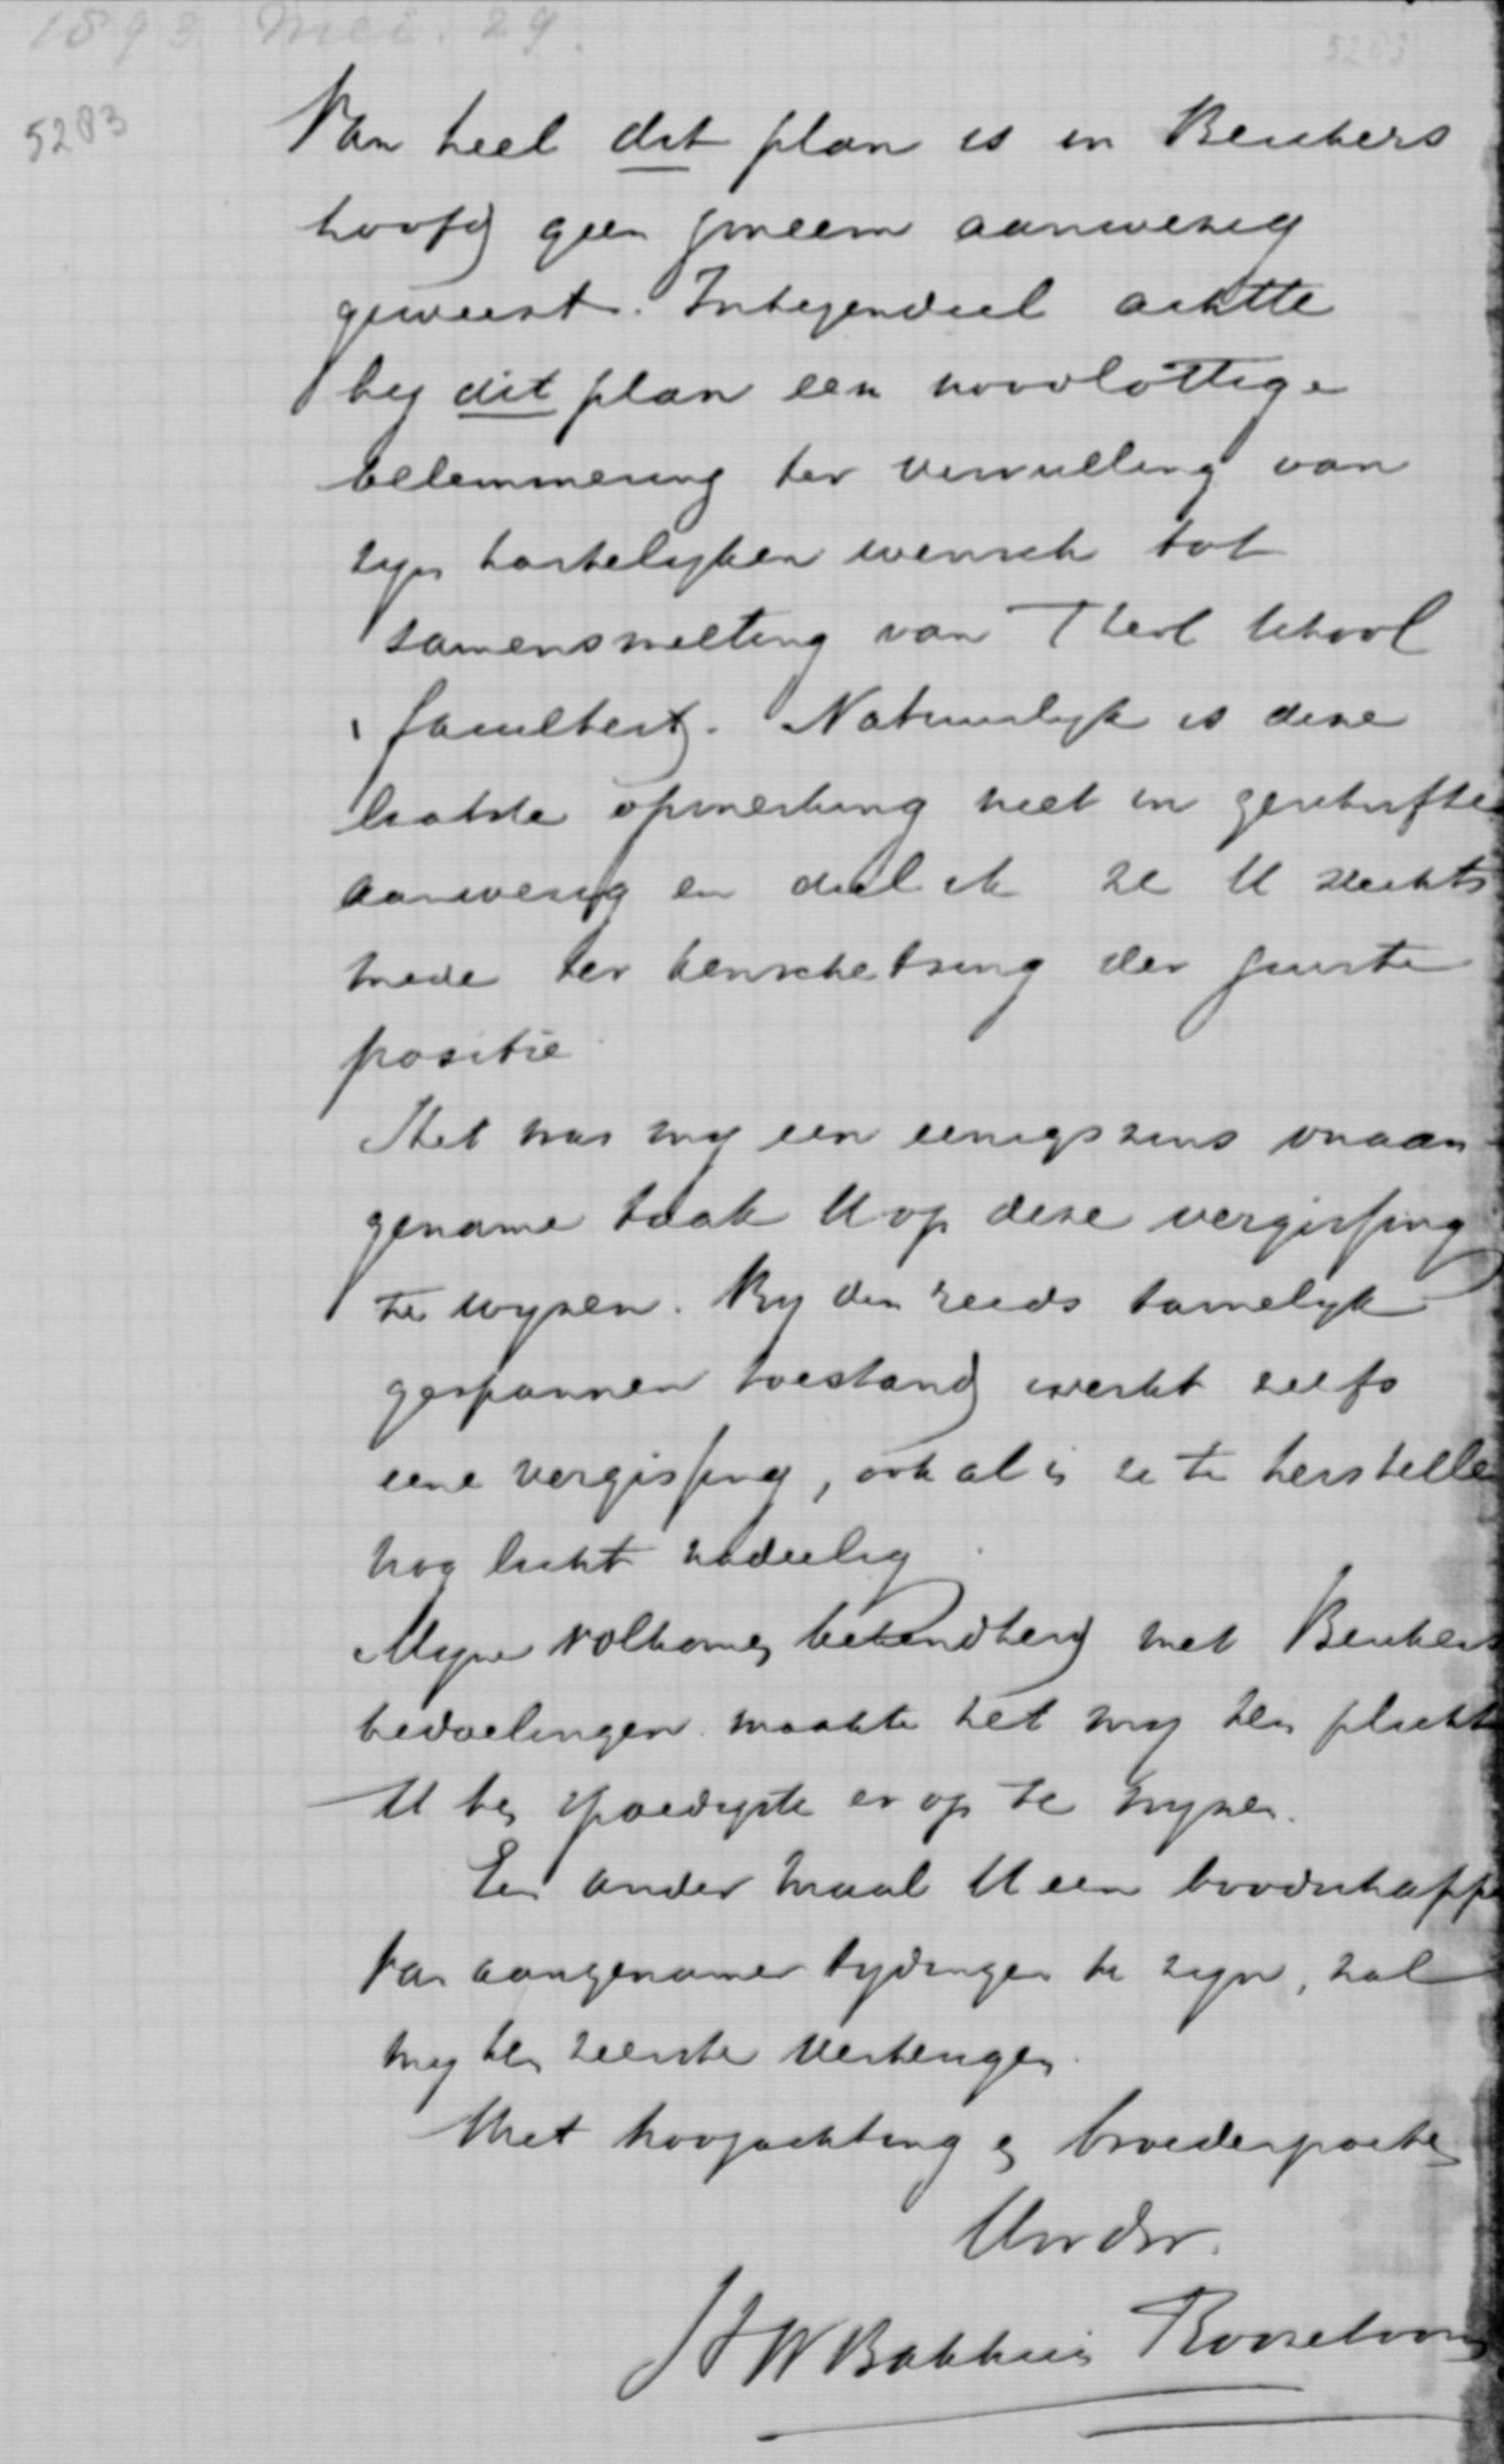 1893 Mei. 29.
5283
5283
Van heel dit plan is in Beukers
hoofd geen zweem aanwezig
geweest. Integendeel achtte
hij dit plan een noodlottige
belemmering ter vervulling van
zijn hartelijken wensch tot
samensmelting van Theol School
& faculteit. Natuurlijk is deze
laatste opmerking niet in geschrifte
aanwezig en deel ik ze U slechts
mede ter kenschetsing der juiste
positie
Het was mij een eenigszins onaan-
gename taak U op deze vergissing
te wijzen. Bij den reeds tamelijk
gespannen toestand werkt zelfs
eene vergissing, ook al is ze te herstelle
nog licht nadeelig
Mijne volkomen bekendheid met Beukers
bedoelingen maakte het mij ten plicht
U ten spoedigste er op te wijzen.
Een ander maal U een boodschapp
van aangenamer tijdingen te zijn, zal
mij ten zeerste verheugen.
Met hoogachting en broedergroete
Uw dr.
HW Bakhuis Roozeboom